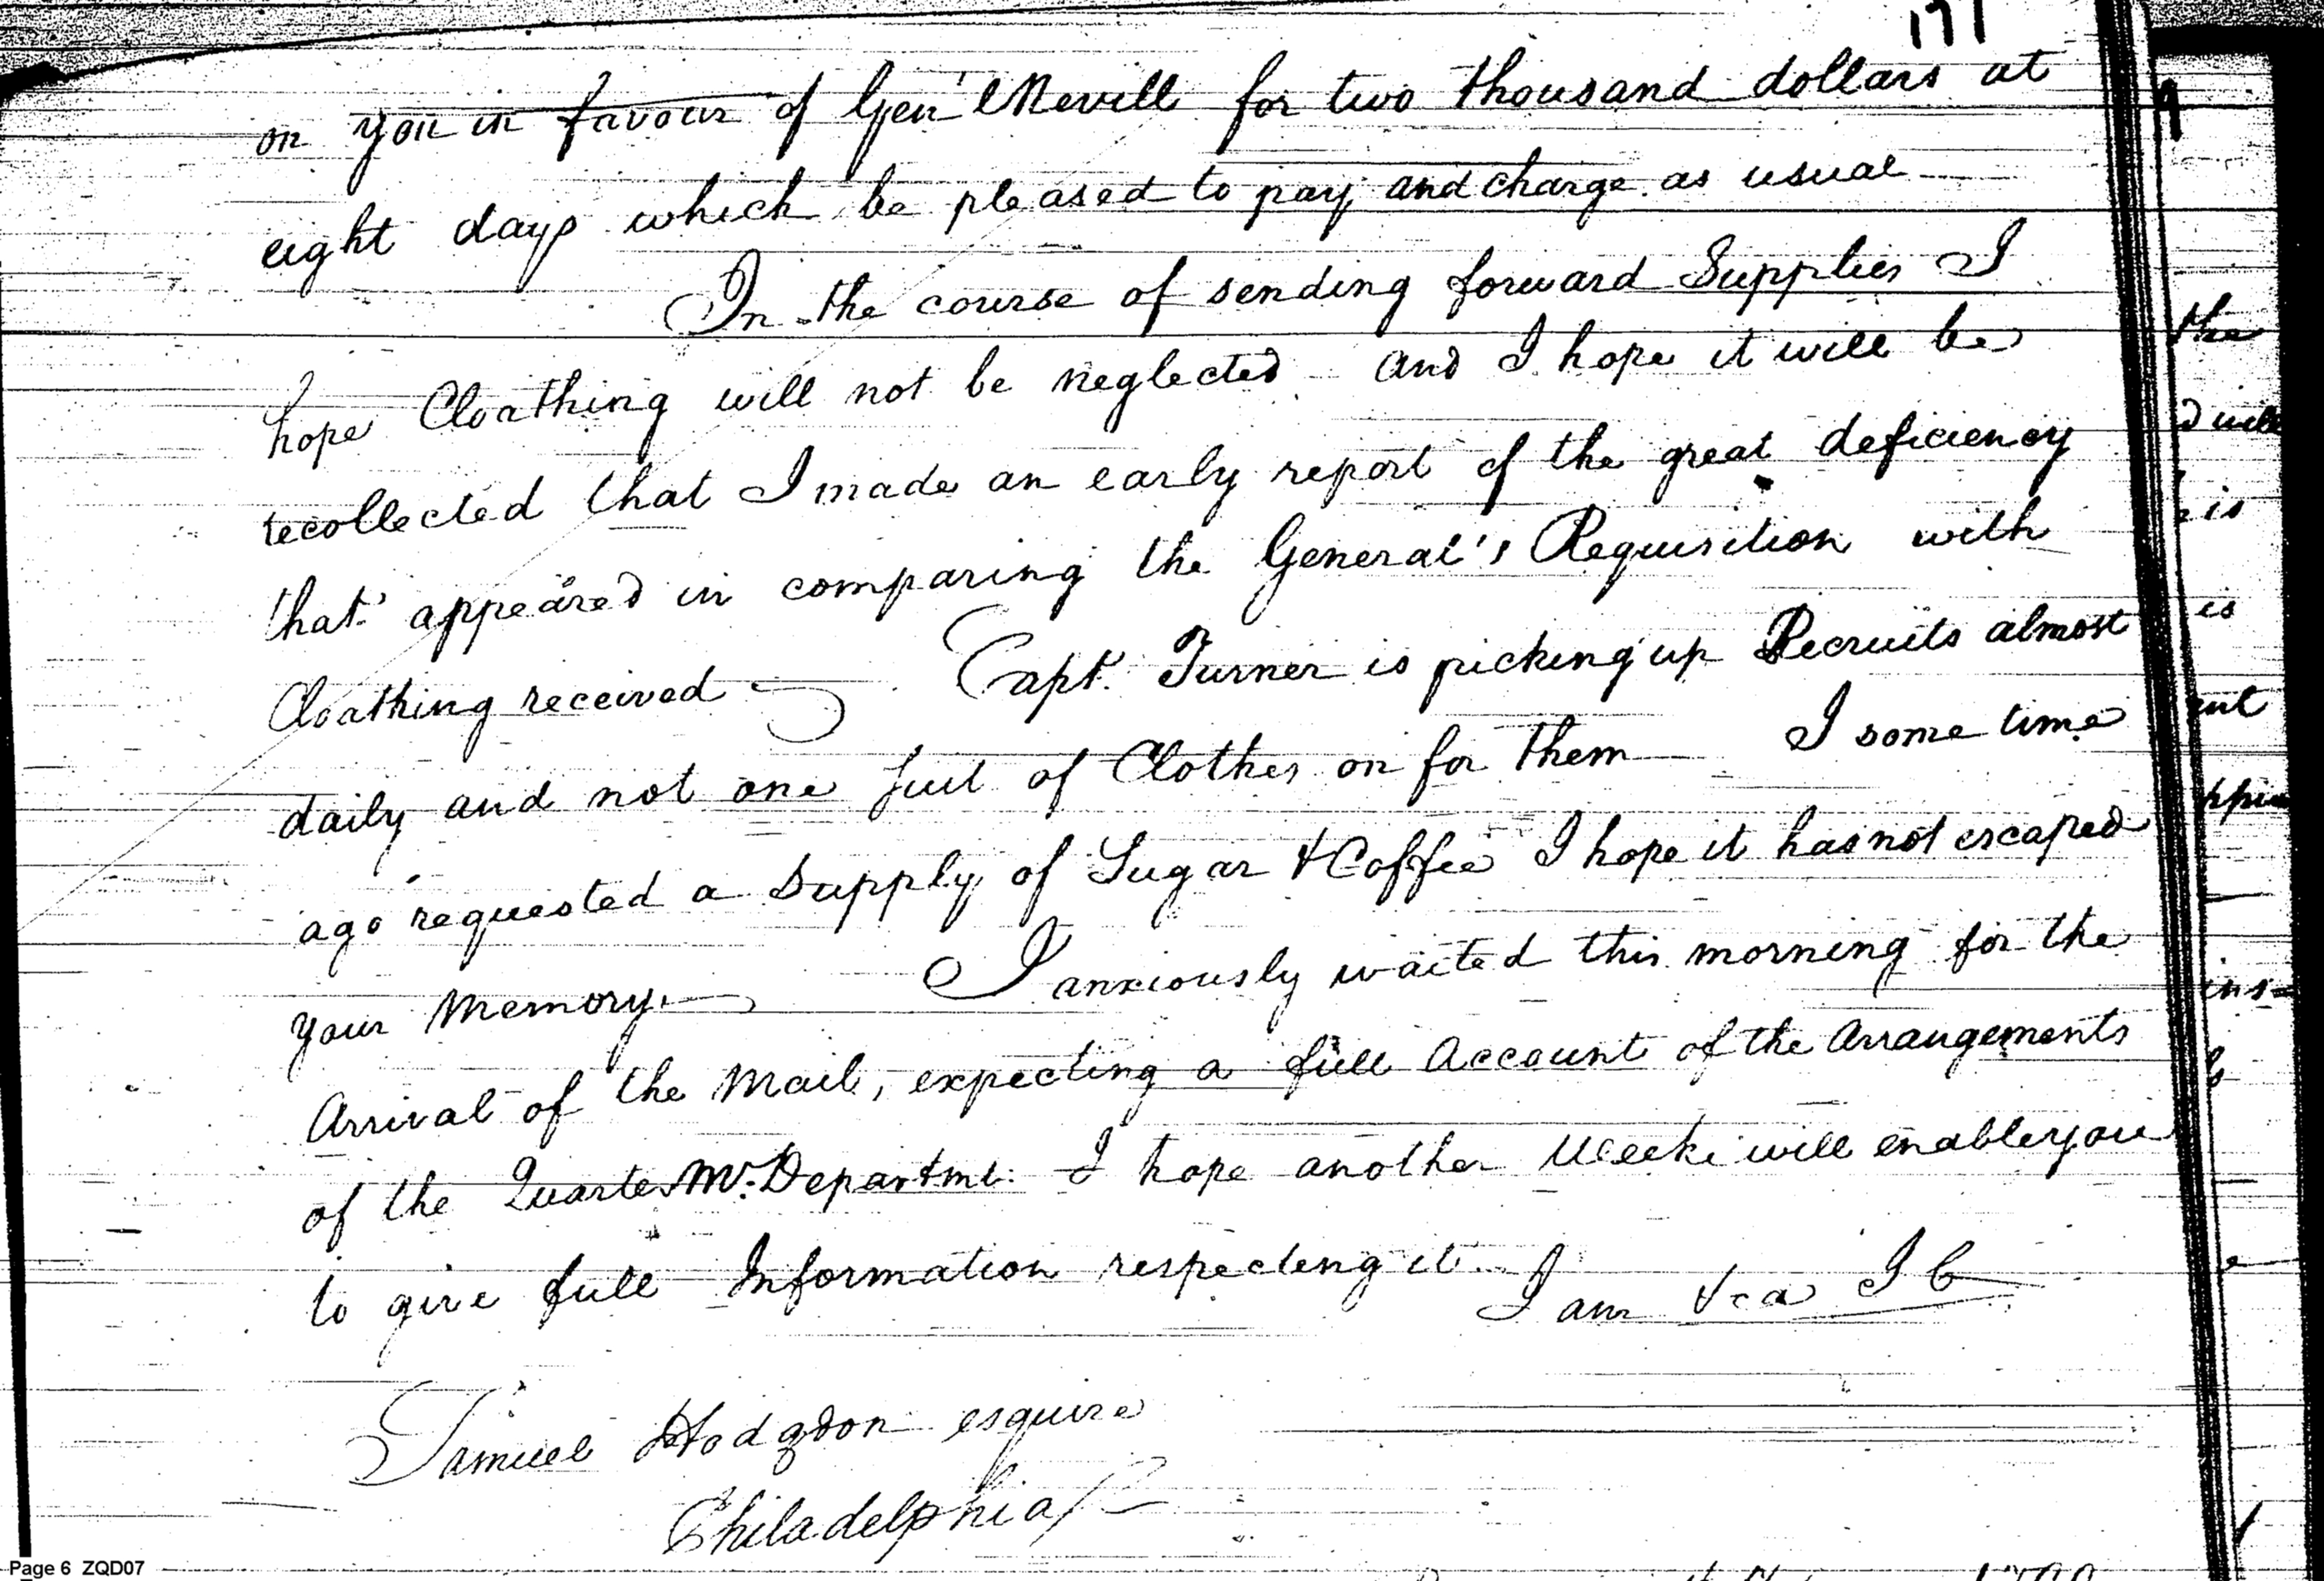 171
on you in favour of Gen'l Nevill for two thousand dollars at
eight days which be pleased to pay and charge as usual
In the course of sending forward Supplies I
hope Cloathing will not be neglected and I hope it will be
recollected that I made an early report of the great deficiency
that appeared in comparing the General's Requisition with
Cloathing received — Capt. Turner is picking up Recruits almost
daily and not one suit of Clothes on for them — I some time
ago requested a Supply of Sugar & Coffee I hope it has not escaped
your Memory. — I anxiously waited this morning for the
Arrival of the Mail, expecting a full Account of the Arrangements
of the Quarter Mr. Departmt. I hope another Week will enable you
to give full Information respecting it. I am &ca I C
Samuel Hodgdon esquire
Philadelphia
the
d will
is
is
ins=
Page 6 ZQD07